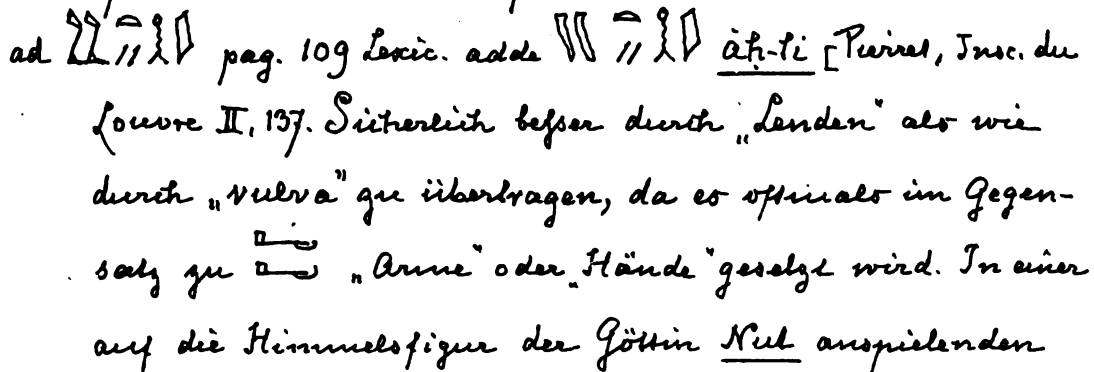 ad pag. 109 Lexic. adde àḥ-ti [Pierret, Insc. du
Louvre II, 137. Sicherlich beſser durch „Lenden" als wie
durch „vulva" zu übertragen, da es oftmals im Gegen-
satz zu „Arme" oder „Hände" gesetzt wird. In einer
auf die Himmelsfigur der Göttin Nut anspielenden